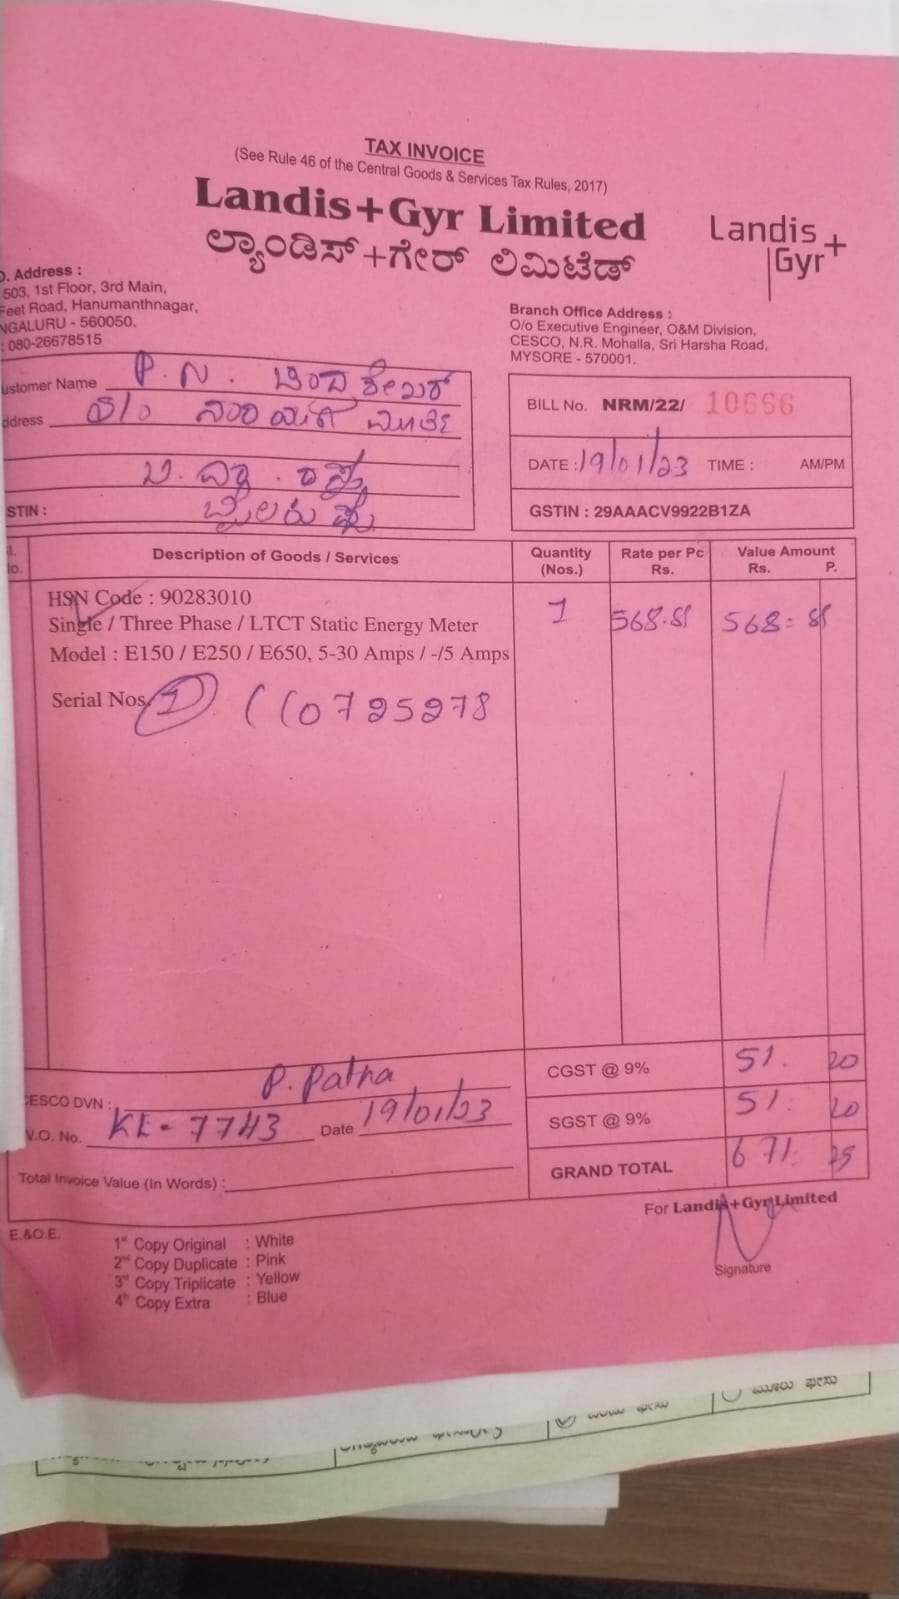 TAX INVOICE
(See Rule 46 of the Central Goods & Services Tax Rules, 2017)
Landis+Gyr Limited
ಲ್ಯಾಂಡಿಸ್+ಗೇರ್ ಲಿಮಿಟೆಡ್
Landis
Gyr+
. Address :
503, 1st Floor, 3rd Main,
Feet Road, Hanumanthnagar,
NGALURU - 560050.
: 080-26678515
Branch Office Address :
O/o Executive Engineer, O&M Division,
CESCO, N.R. Mohalla, Sri Harsha Road,
MYSORE - 570001.
ustomer Name P. N.
ddress S/o
STIN :
BILL No. NRM/22/ 10666
DATE : 19/01/23 TIME : AM/PM
GSTIN : 29AAACV9922B1ZA
Description of Goods / Services Quantity (Nos.) Rate per Pc Rs. Value Amount Rs. P.
HSN Code : 90283010
Single / Three Phase / LTCT Static Energy Meter 1 568.81 568=81
Model : E150 / E250 / E650, 5-30 Amps / -/5 Amps
Serial Nos. 1 ((0725278
CGST @ 9% 51. 20
SGST @ 9% 51. 20
GRAND TOTAL 671. 25
CESCO DVN : P. Patna
W.O. No. KE-7743 Date 19/01/23
Total Invoice Value (In Words) :
For Landis+Gyr Limited
Signature
E.&O.E.
1st Copy Original : White
2nd Copy Duplicate : Pink
3rd Copy Triplicate : Yellow
4th Copy Extra : Blue